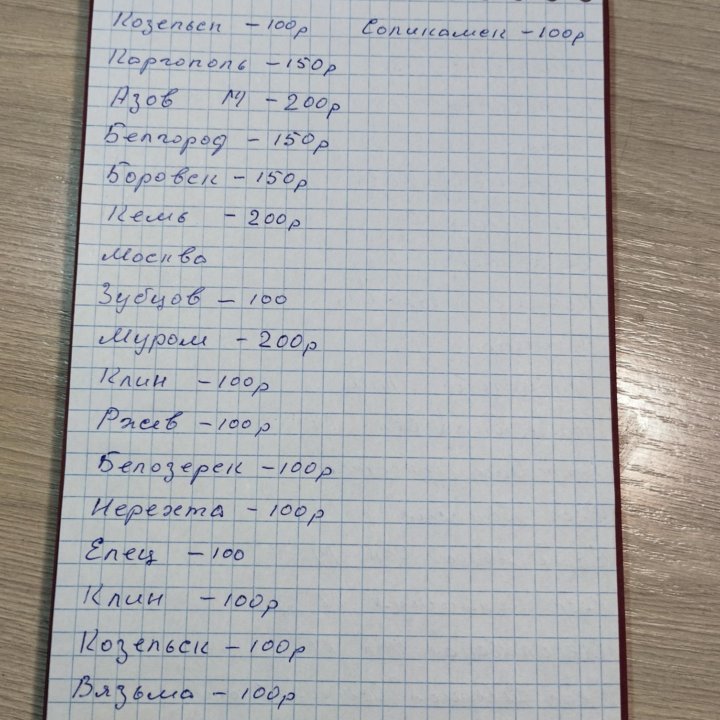 Козельск - 100р Соликамск - 100р
Каргополь - 150р
Азов М - 200р
Белгород - 150р
Боровск - 150р
Кемь - 200р
Москва
Зубцов - 100
Муром - 200р
Клин - 100р
Ржев - 100р
Белозерск - 100р
Нерехта - 100р
Елец - 100
Клин - 100р
Козельск - 100р
Вязьма - 100р